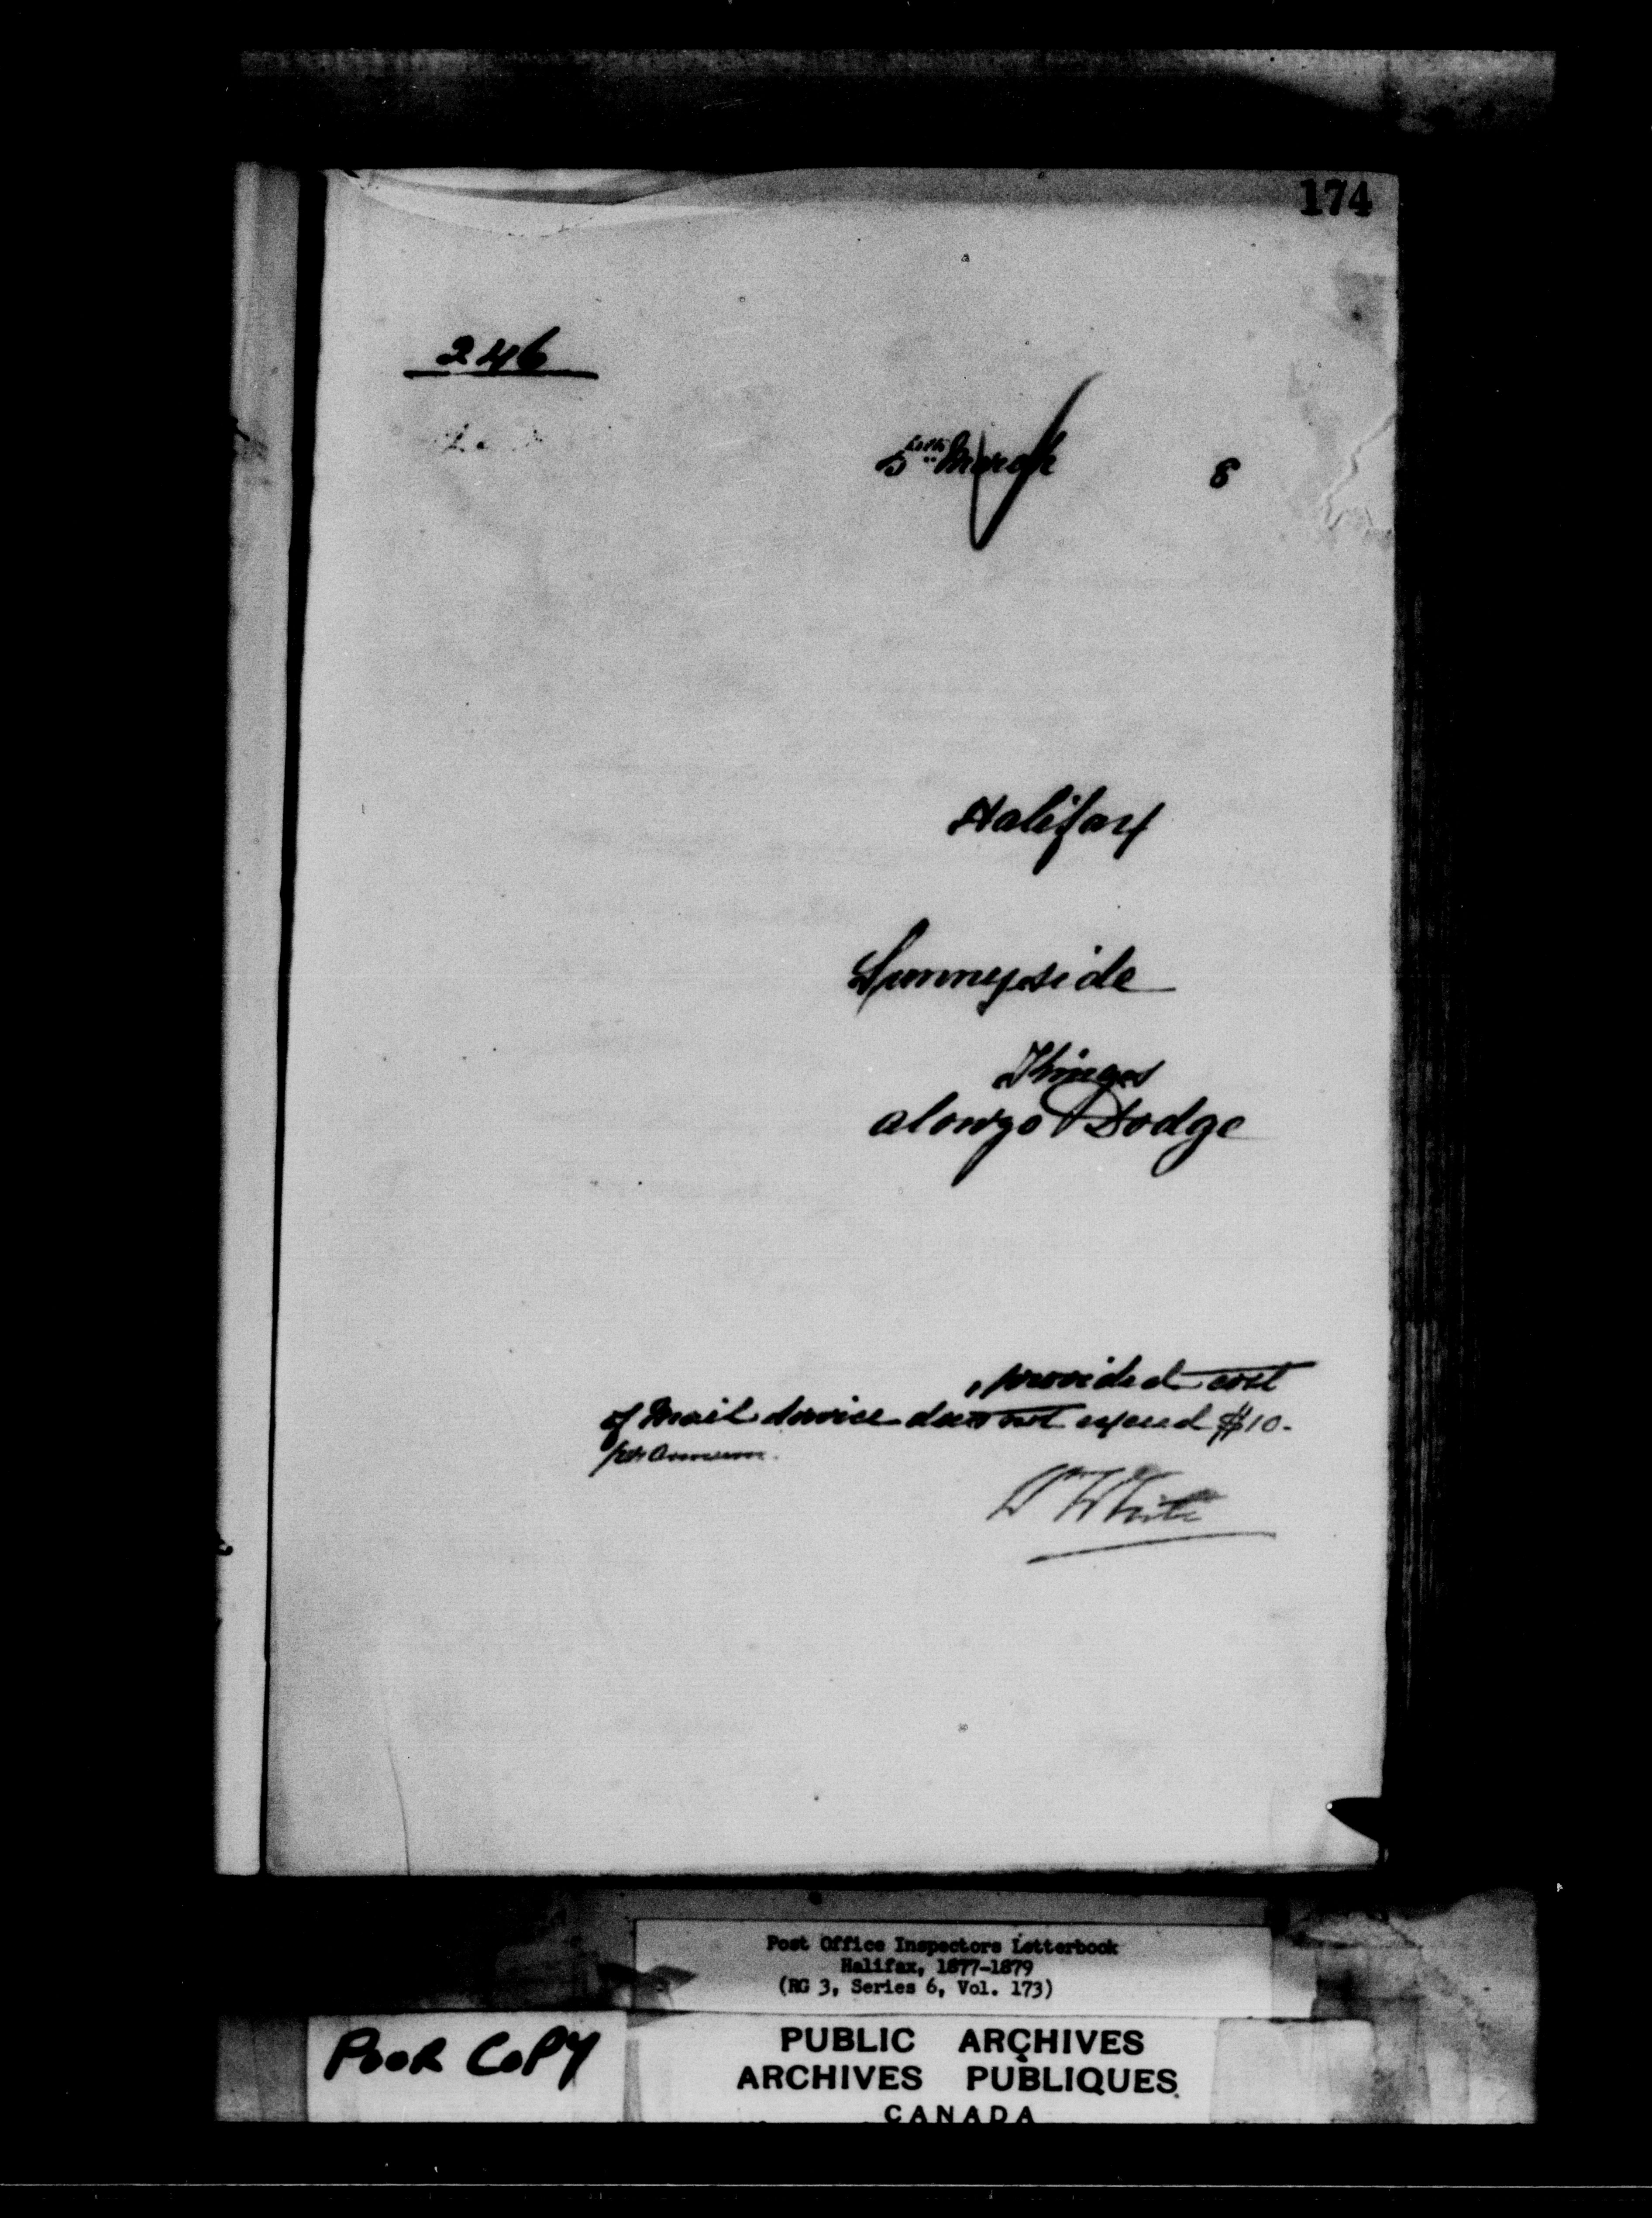 174
246
5th March 8
Halifax
Sunnyside
Kings
Alonzo Dodge
, provided cost
of Mail service does not exceed $10.-
per Annum.
White
Post Office Inspectors Letterbook
Halifax, 1877-1879
(RG 3, Series 6, Vol. 173)
POOR COPY
PUBLIC ARCHIVES
ARCHIVES PUBLIQUES
CANADA